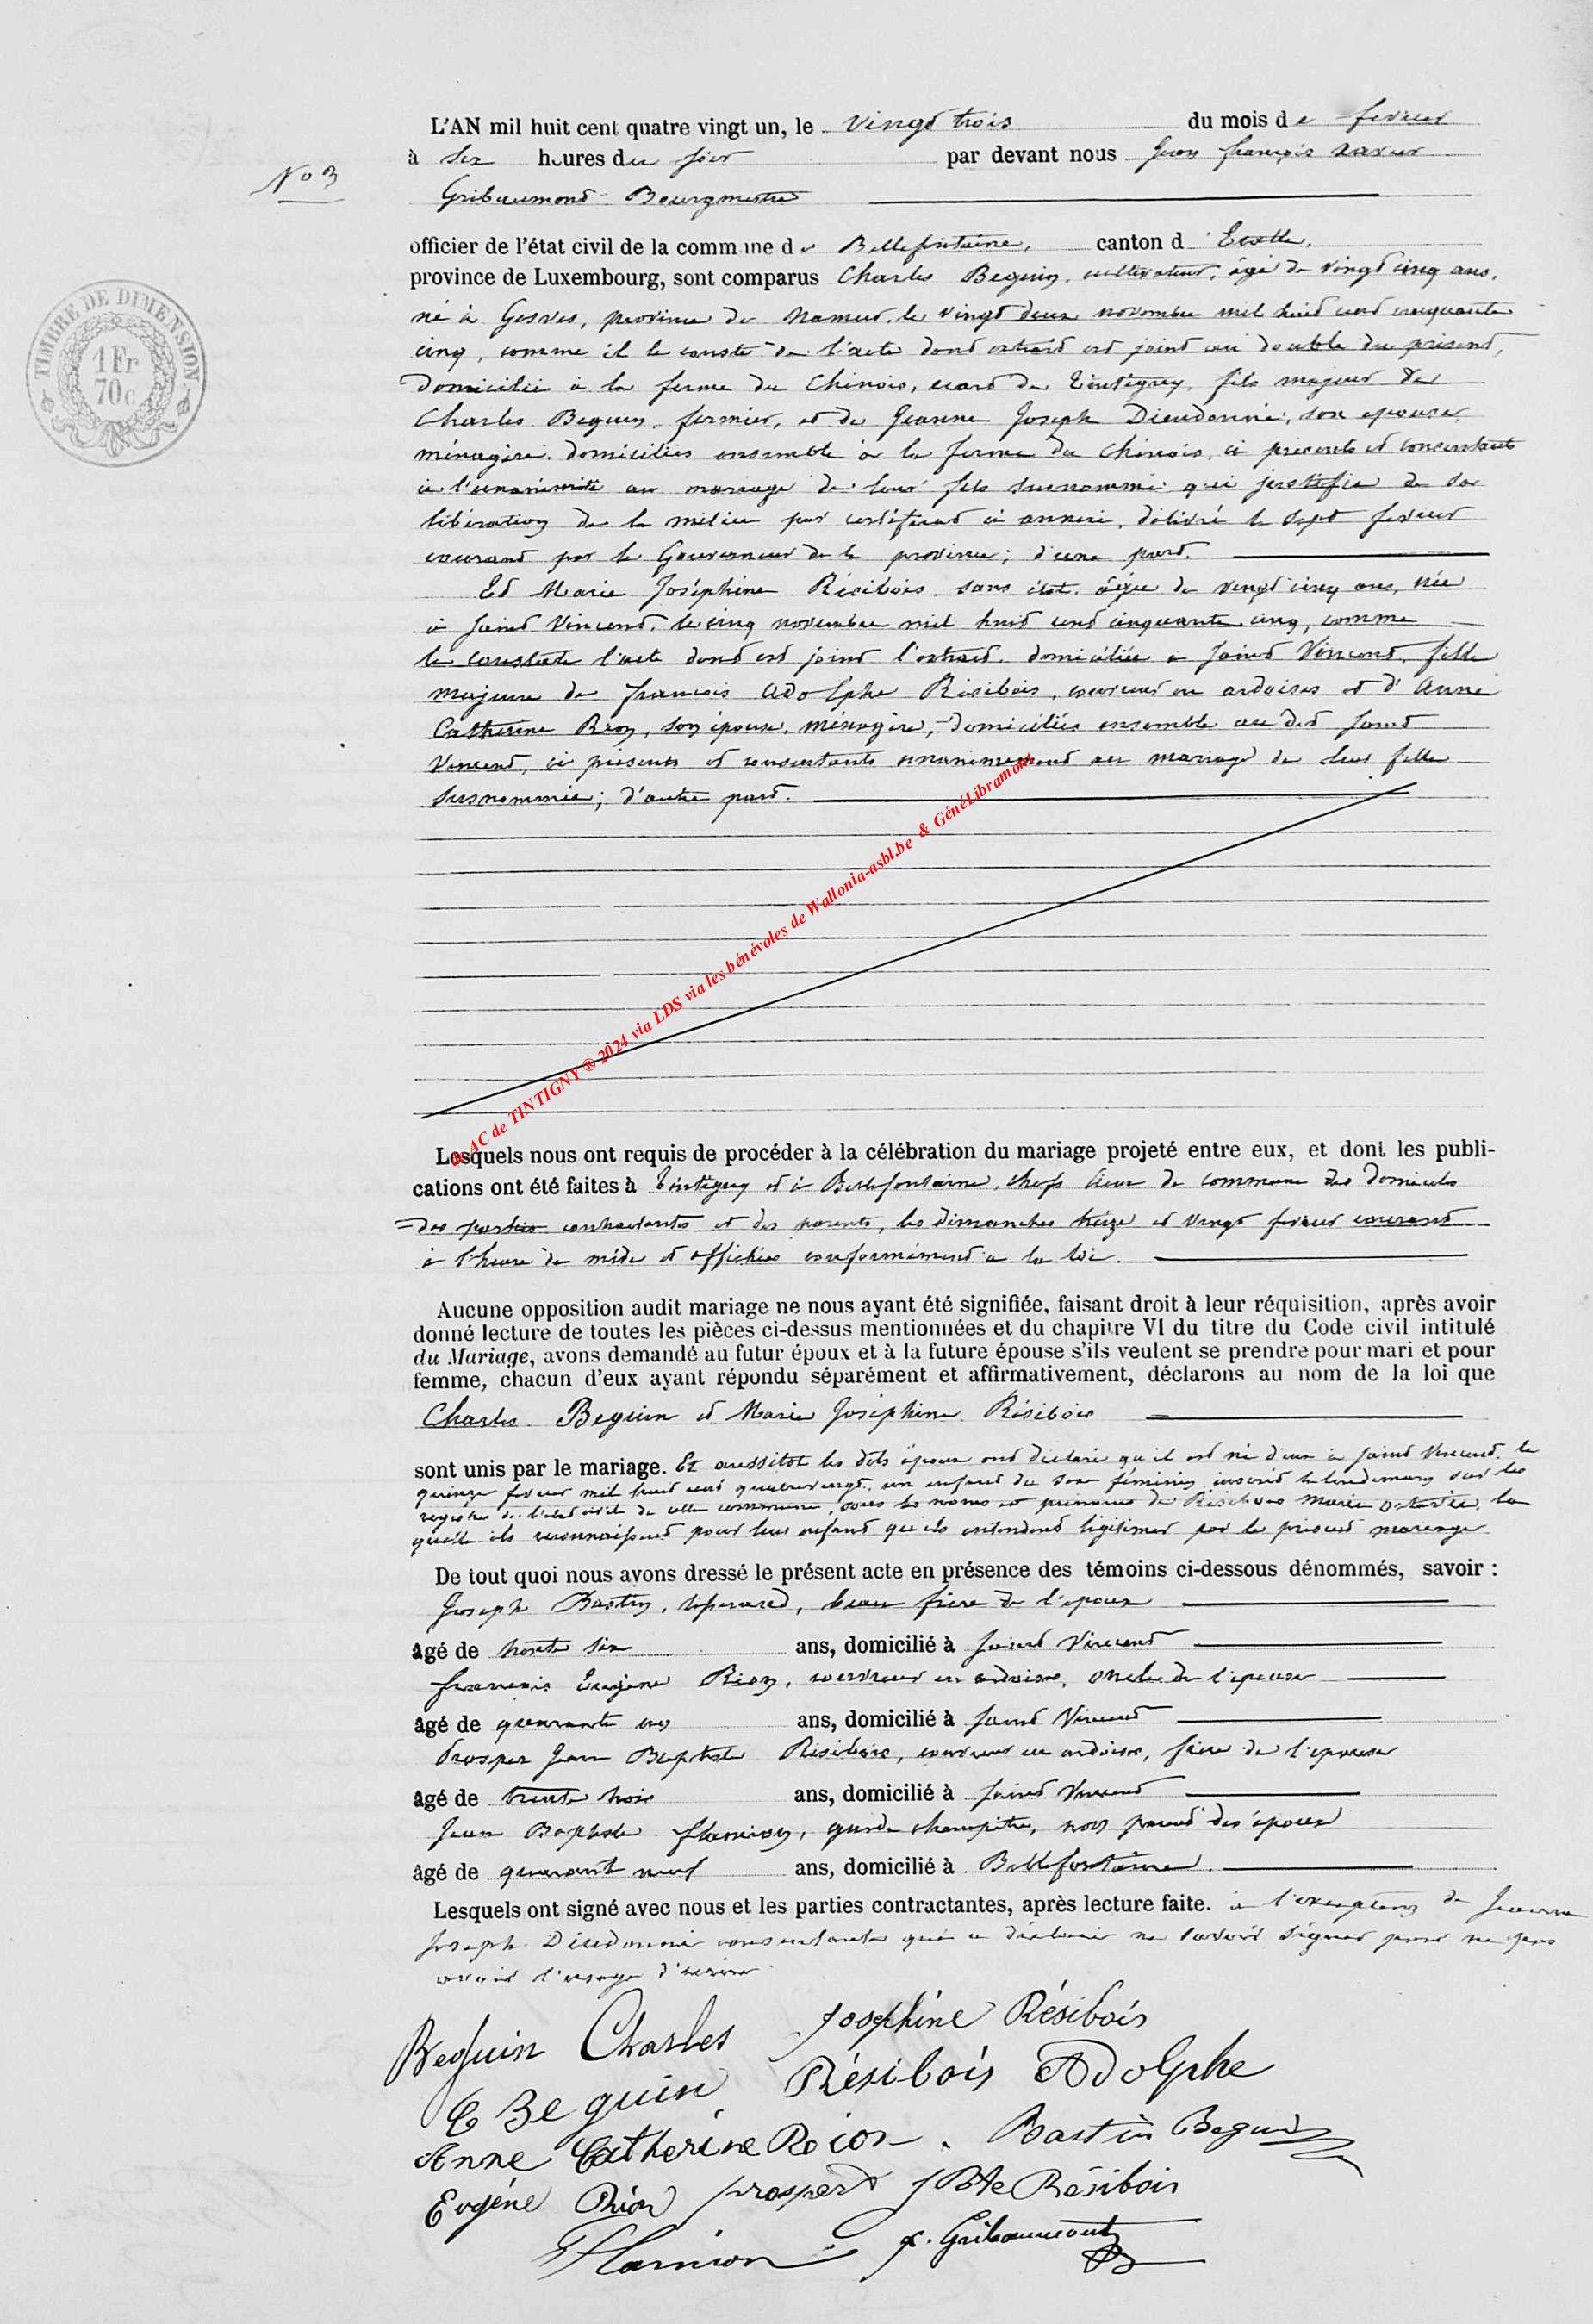 L'AN mil huit cent quatre vingt un, le vingt trois du mois de fevrier
à six heures du soir par devant nous Jean françois xavier
N° 3
Gribaumont Bourgmestre
officier de l'état civil de la commune de Bellefontaine, canton d'Etalle,
province de Luxembourg, sont comparus Charles Beguin, cultivateur, âgé de vingt cinq ans,
né à Gesves, province de Namur, le vingt deux novembre mil huit cent cinquante
cinq, comme il le conste de l'acte dont extrait est joint au double du présent,
domicilié à la ferme du Chinois, écart de Tintigny, fils majeur de
Charles Beguin, fermier, et de Jeanne Joseph Dieudonné, son epouse,
ménagère, domiciliés ensemble à la ferme du Chinois, ci présents et consentants
à l'unanimité au mariage de leur fils susnommé qui justifie de sa
libération de la milice par certificat ci annexé, délivré le sept fevrier
courant par le Gouverneur de la province; d'une part.
Et Marie Joséphine Résibois, sans état, âgée de vingt cinq ans, née
à Saint Vincent, le cinq novembre mil huit cent cinquante cinq, comme
le constate l'acte dont est joint l'extrait, domiciliée à Saint Vincent, fille
majeure de françois Adolphe Résibois, couvreur en ardoises et d'Anne
Catherine Rion, son épouse, ménagère, domiciliés ensemble au dit Saint
Vincent, ci présents et consentants unanimement au mariage de leur fille
susnommée; d'autre part.
AC de TINTIGNY ® 2024 via LDS via les bénévoles de Wallonia-asbl.be & GénéLibramont
TIMBRE DE DIMENSION
1 Fr
70c
Lesquels nous ont requis de procéder à la célébration du mariage projeté entre eux, et dont les publi-
cations ont été faites à Tintigny et à Bellefontaine, chefs lieux de commune des domiciles
des parties contractantes et des parents, les dimanches treize et vingt fevrier courant
à l'heure de midi et affichées conformément à la loi.
Aucune opposition audit mariage ne nous ayant été signifiée, faisant droit à leur réquisition, après avoir
donné lecture de toutes les pièces ci-dessus mentionnées et du chapitre VI du titre du Code civil intitulé
du Mariage, avons demandé au futur époux et à la future épouse s'ils veulent se prendre pour mari et pour
femme, chacun d'eux ayant répondu séparément et affirmativement, déclarons au nom de la loi que
Charles Beguin et Marie Joséphine Résibois
sont unis par le mariage. Et aussitôt les dits époux ont déclaré qu'il est né d'eux à Saint Vincent, le
quinze fevrier mil huit cent quatrevingt, un enfant du sexe féminin, inscrit le lendemain sur les
registres de l'état civil de cette commune, sous les noms et prénoms de Résibois Marie Octavie, la
quelle ils reconnaissent pour leur enfant qu'ils entendent légitimer par le présent mariage
De tout quoi nous avons dressé le présent acte en présence des témoins ci-dessous dénommés, savoir :
Joseph Bastin, beau frère de l'époux
âgé de trente six ans, domicilié à Saint Vincent
françois Eugène Rion, couvreur en ardoises, oncle de l'épouse
âgé de quarante ans, domicilié à Saint Vincent
Prosper Jean Baptiste Résibois, couvreur en ardoises, frère de l'epouse
âgé de trente trois ans, domicilié à Saint Vincent
Jean Baptiste flamion, garde champêtre, non parent des époux
âgé de quarante neuf ans, domicilié à Bellefontaine.
Lesquels ont signé avec nous et les parties contractantes, après lecture faite. à l'exception de Jeanne
Joseph Dieudonné consentante qui a déclaré ne savoir signer pour ne pas
avoir l'usage d'écrire
Beguin Charles Joséphine Résibois
C Beguin Résibois Adolphe
Anne Catherine Roion. Bastin Beguin
Eugène Rion prosper J Bte Résibois
Flamion x. Gribaumont